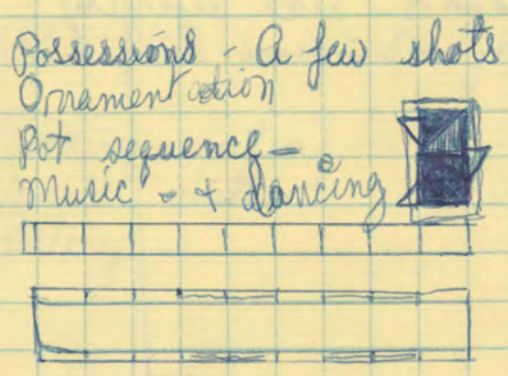 Possessions - A few shots
Ornamentation
Pot sequence -
Music - + dancing